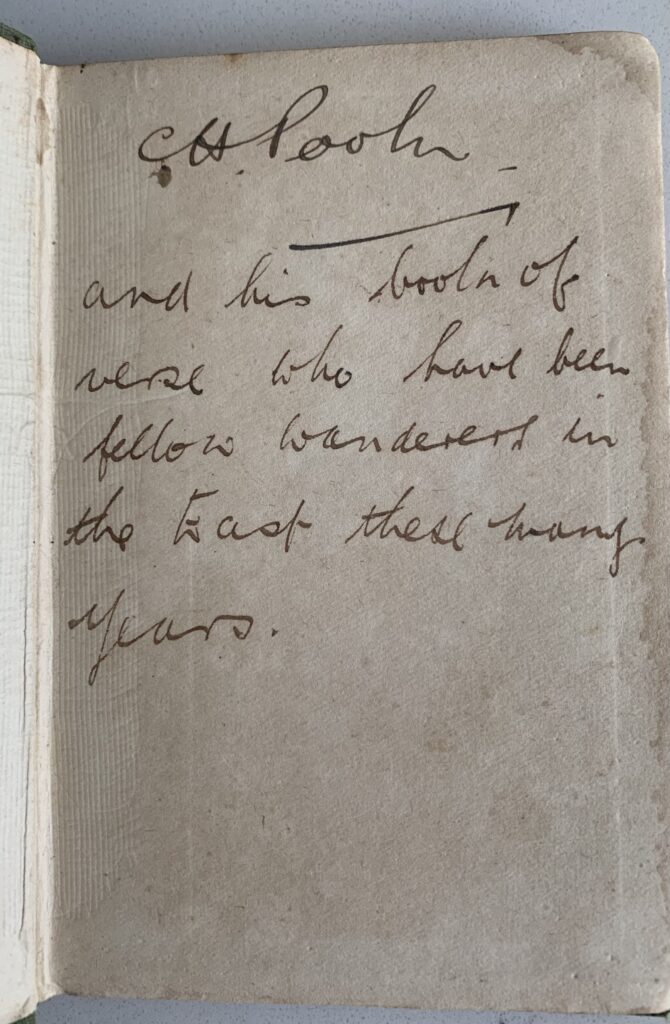 C.H. Pook
and his book of
verse who have been
fellow wanderers in
the East these many
years.